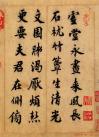 虛堂永晝來風長
石枕竹簟生清光
文園肺渴厭煩熱
更要夫君在側傍